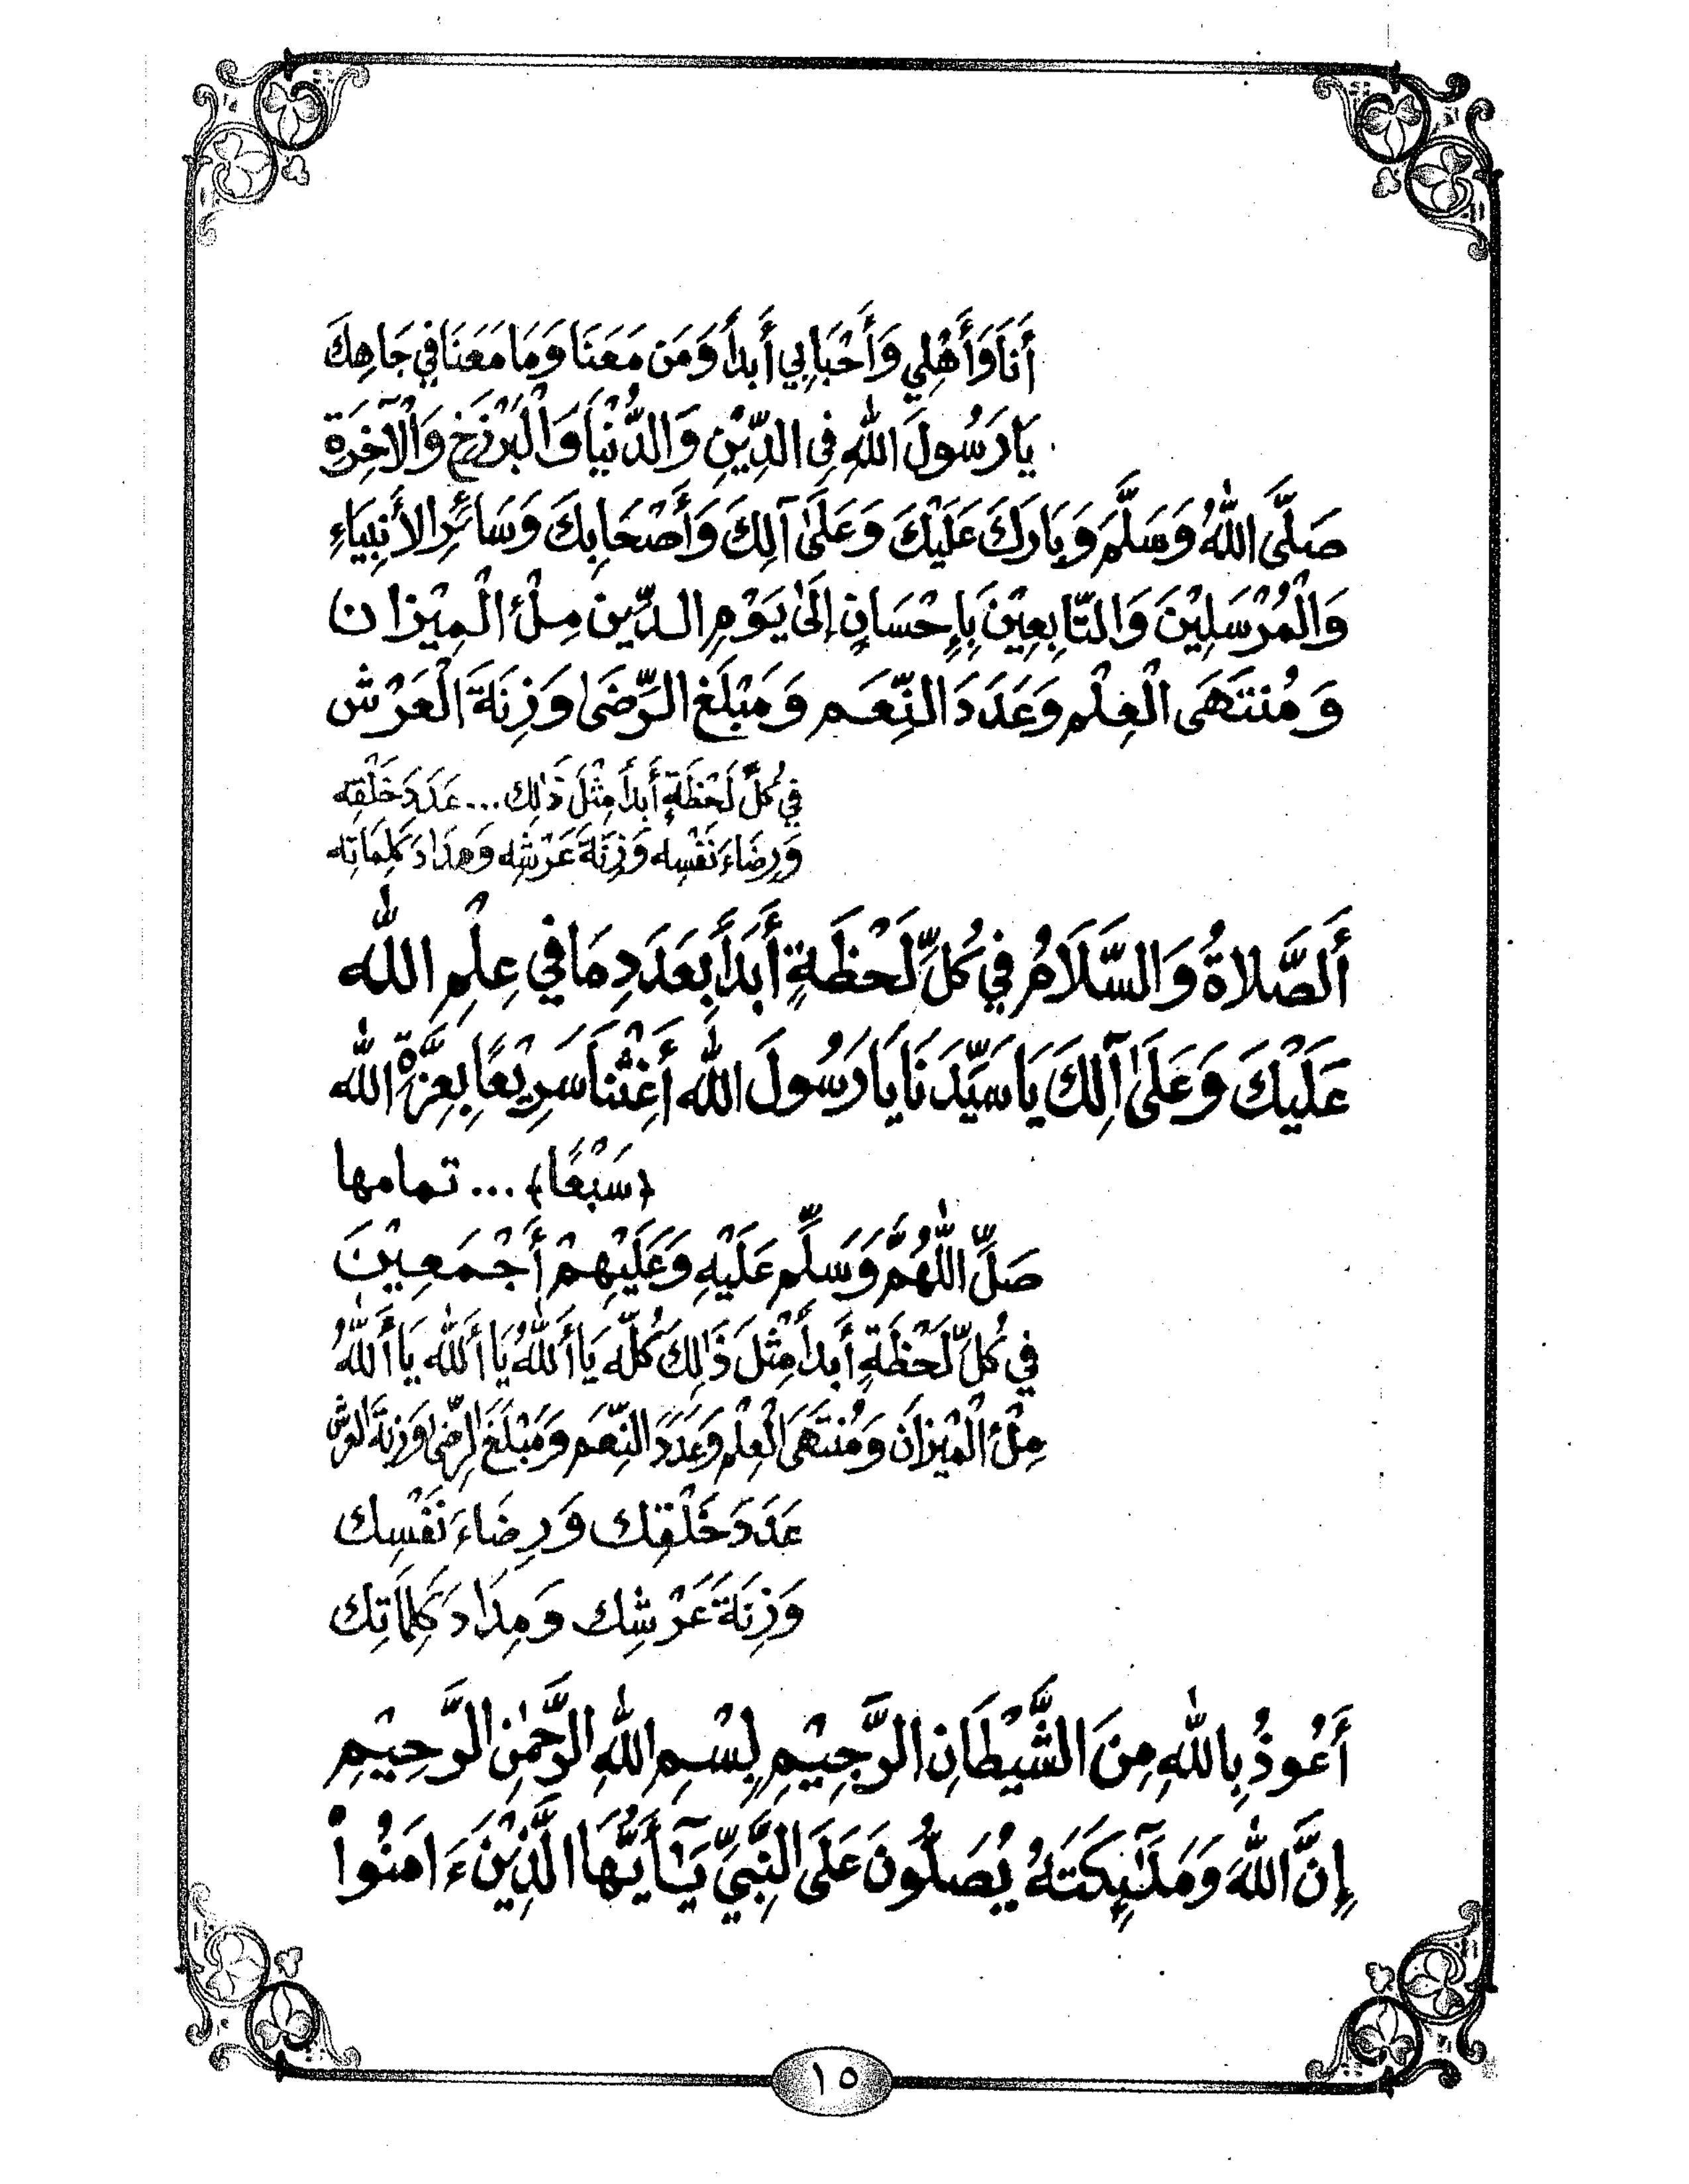 أَنَا وَأَهْلِي وَأَحْبَابِي أَبَداً وَمَن مَعَنَا وَمَا مَعَنَا فِي جَاهِكَ
يَا رَسُولَ اللهِ فِى الدِّيْنِ وَالدُّنْيَا وَالْبَرْزَخِ وَالْآخِرَةِ
صَلَّى اللهُ وَسَلَّمَ وَبَارَكَ عَلَيْكَ وَعَلَىٰ آلِكَ وَأَصْحَابِكَ وَسَائِرِ الأَنبِيَاءِ
وَالْمُرْسَلِيْنَ وَالتَّابِعِيْنَ بِإِحْسَانٍ إِلَىٰ يَوْمِ الدِّينِ مِلْءَ الْمِيْزَان
وَمُنتَهَى الْعِلْمِ وَعَدَدَ النِّعَمِ وَمَبْلَغَ الرِّضَىٰ وَزِنَةَ الْعَرْش
فِي كُلِّ لَحْظَةٍ أَبَداً مِثْلَ ذَٰلِك... عَدَدَ خَلْقِه
وَرِضَاءَ نَفْسِه وَزِنَةَ عَرْشِه وَمِدَادَ كَلِمَاتِه
أَلصَّلَاةُ وَالسَّلَامُ فِي كُلِّ لَحْظَةٍ أَبَداً بِعَدَدِ مَا فِي عِلْمِ الله
عَلَيْكَ وَعَلَىٰ آلِكَ يَا سَيِّدَنَا يَا رَسُولَ الله أَغِثْنَا سَرِيْعًا بِعِزَّةِ الله
﴿سَبْعًا﴾... تمامها
صَلِّ اللَّهُمَّ وَسَلِّم عَلَيْهِ وَعَلَيْهِمْ أَجْمَعِيْنَ
فِي كُلِّ لَحْظَةٍ أَبَداً مِثْلَ ذَٰلِكَ كُلِّه يَا أَللهُ يَا أَللهُ يَا أَللهُ
مِلْءَ الْمِيْزَان وَمُنتَهَى الْعِلْم وَعَدَدَ النِّعَم وَمَبْلَغَ الرِّضَىٰ وَزِنَةَ العَرْش
عَدَدَ خَلْقِك وَرِضَاءَ نَفْسِك
وَزِنَةَ عَرْشِك وَمِدَادَ كَلِمَاتِك
أَعُوذُ بِاللهِ مِنَ الشَّيْطَانِ الرَّجِيْمِ بِسْمِ اللهِ الرَّحْمٰنِ الرَّحِيْمِ
إِنَّ اللهَ وَمَلَٰٓئِكَتَهُ يُصَلُّونَ عَلَى النَّبِيِّ يَٰٓأَيُّهَا الَّذِيْنَ ءَامَنُواْ
١٥